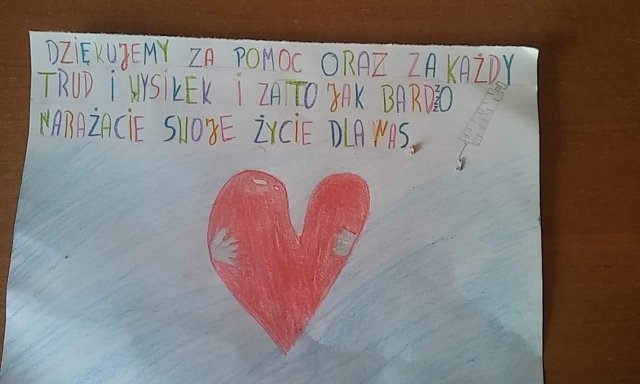 DZIĘKUJEMY ZA POMOC ORAZ ZA KAŻDY
TRUD I WYSIŁEK I ZATO JAK BARDZO
NARAŻACIE SWOJE ŻYCIE DLA NAS.